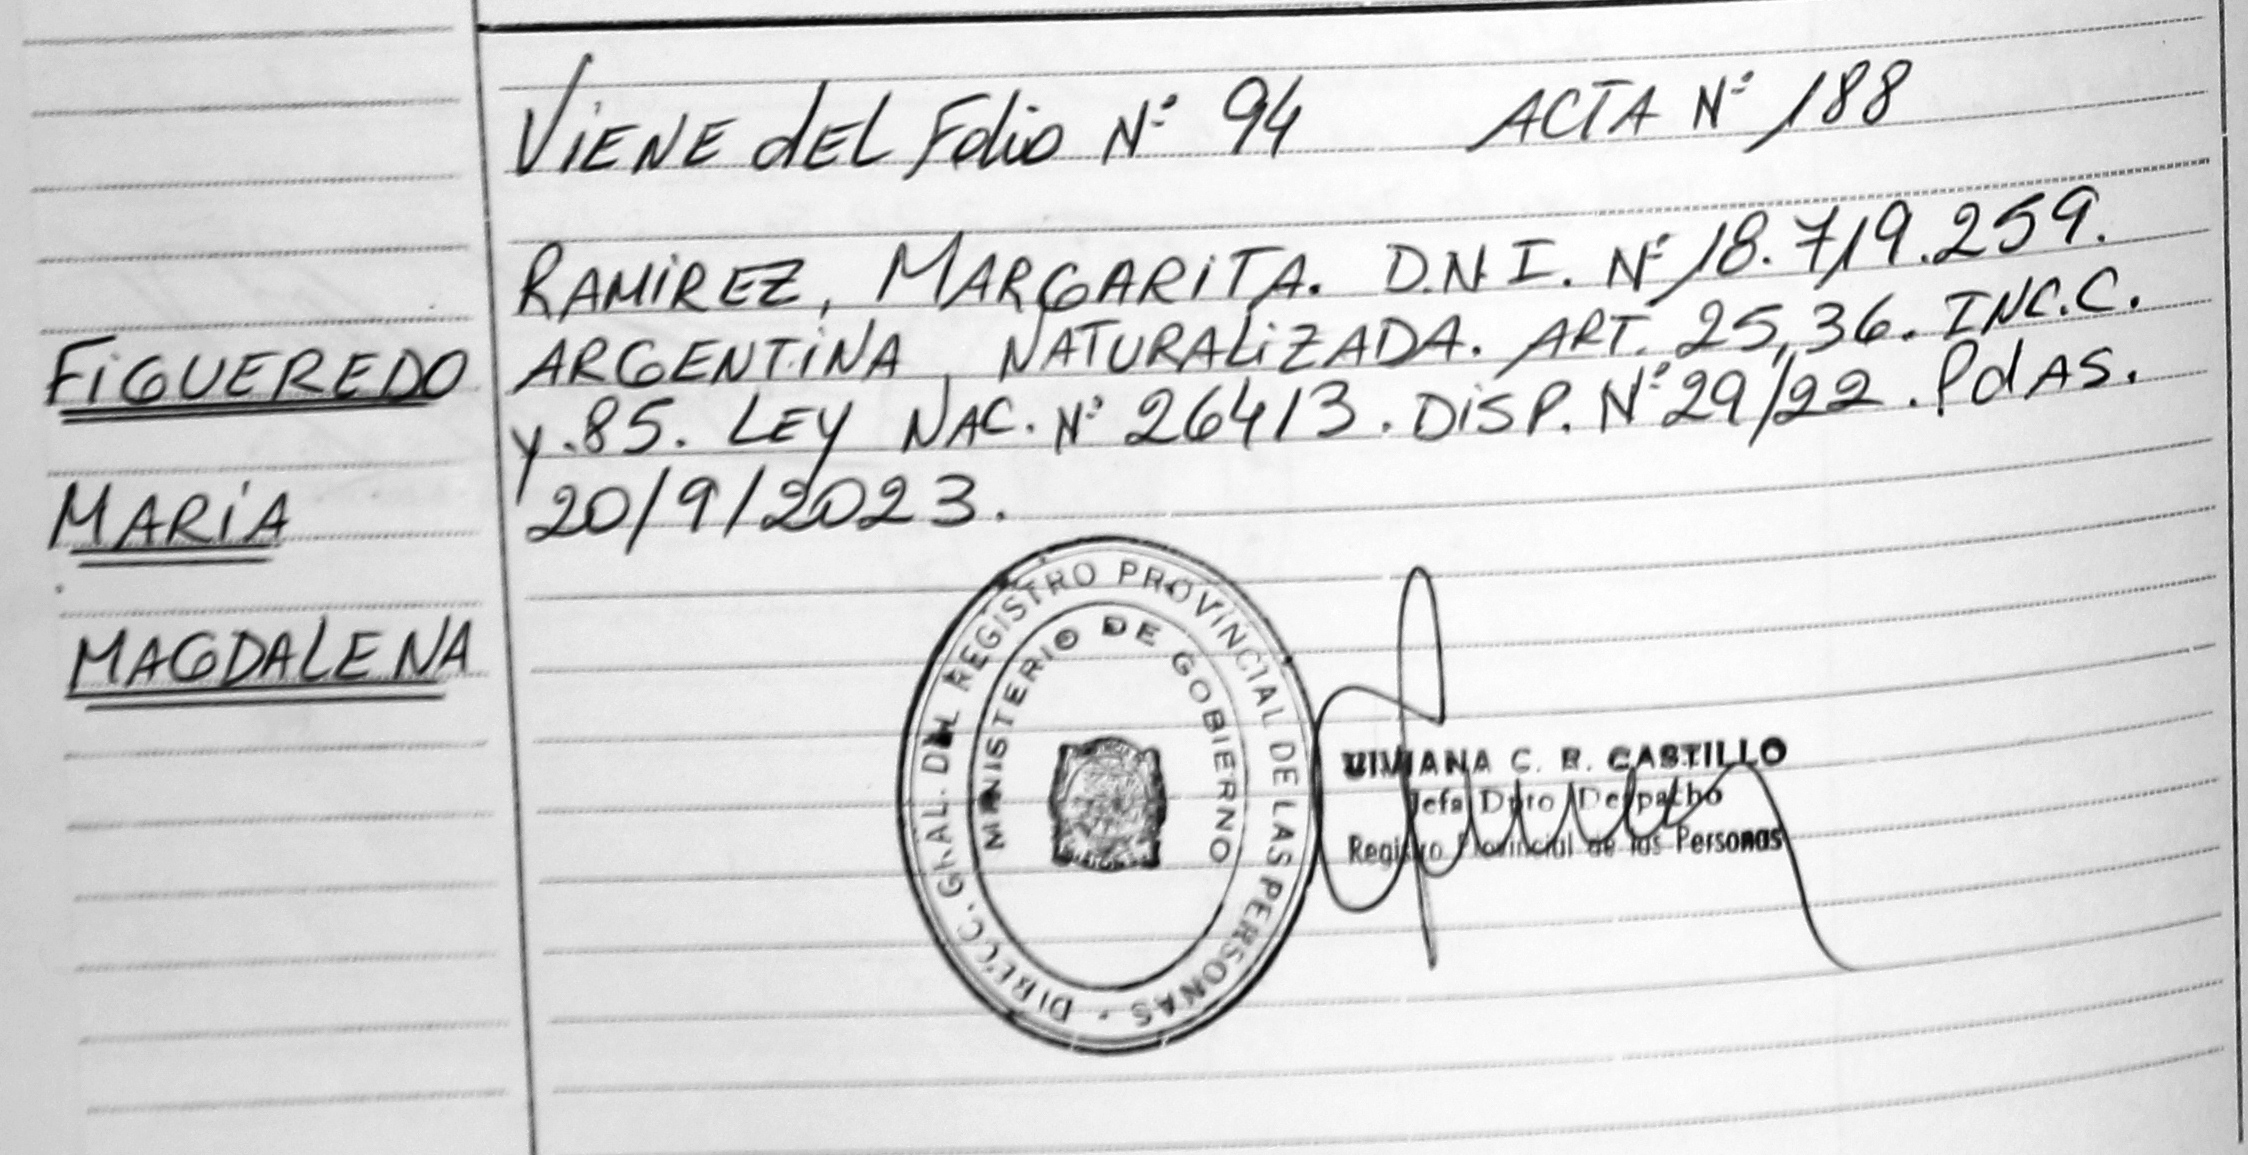 Viene del Folio Nº 94 ACTA Nº 188
RAMIREZ, MARGARITA. D.N.I. Nº 18.719.259.
ARGENTINA, NATURALIZADA. ART. 25,36. INC.C.
y.85. LEY NAC. Nº 26413. DISP. Nº 29/22. PdAS.
20/9/2023.
FIGUEREDO
MARÍA
MAGDALENA
DIRECC. GRAL. DEL REGISTRO PROVINCIAL DE LAS PERSONAS -
MINISTERIO DE GOBIERNO
VIVIANA C. R. CASTILLO
Jefa Dpto Despacho
Registro Provincial de las Personas